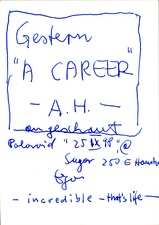 Gestern
"A CAREER"
- A.H. -
angeschaut
Polaroid "25 IX 98", @
Sugar 250 E Houston
- incredible - that's life -